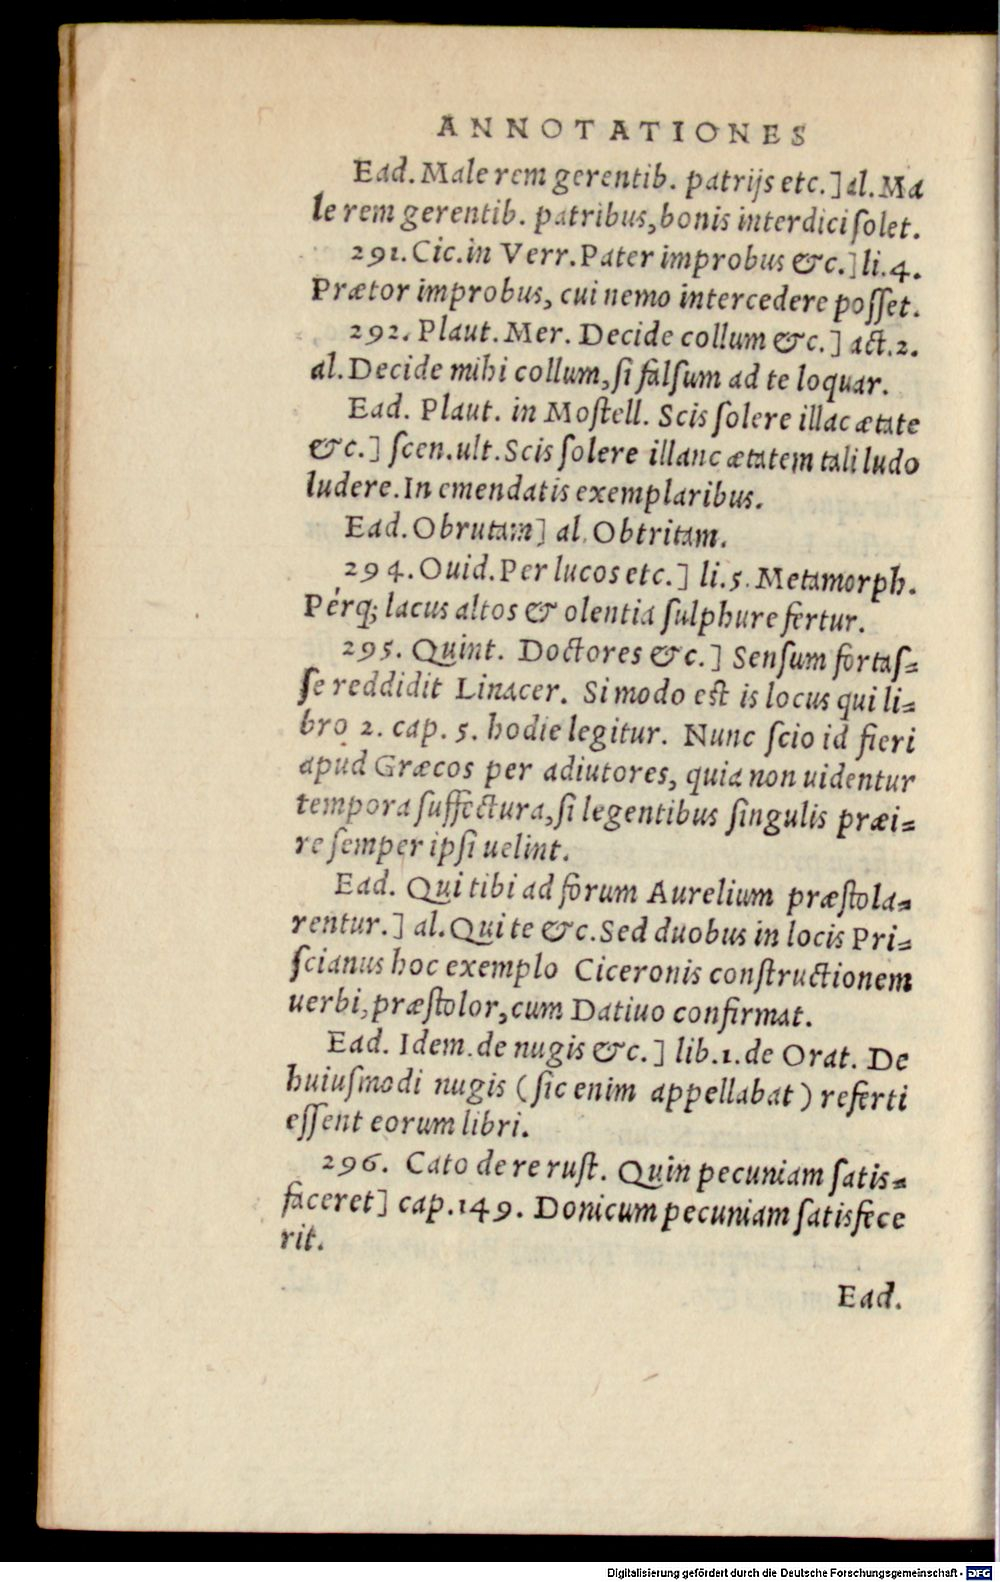 ANNOTATIONES
Ead. Male rem gerentib. patrijs etc.] al. Ma
le rem gerentib. patribus, bonis interdici ſolet.
291. Cic. in Verr. Pater improbus &c.] li. 4.
Prætor improbus, cui nemo intercedere poſſet.
292. Plaut. Mer. Decide collum &c.] act. 2.
al. Decide mihi collum, ſi falſum ad te loquar.
Ead. Plaut. in Moſtell. Scis ſolere illac ætate
&c.] ſcen. ult. Scis ſolere illanc ætatem tali ludo
ludere. In emendatis exemplaribus.
Ead. Obrutam] al. Obtritam.
294. Ouid. Per lucos etc.] li. 5. Metamorph.
Pérq; lacus altos & olentia ſulphure fertur.
295. Quint. Doctores &c.] Senſum fortaſ=
ſe reddidit Linacer. Si modo eſt is locus qui li=
bro 2. cap. 5. hodie legitur. Nunc ſcio id fieri
apud Græcos per adiutores, quia non uidentur
tempora ſuffectura, ſi legentibus ſingulis præi=
re ſemper ipſi uelint.
Ead. Qui tibi ad forum Aurelium præſtola=
rentur.] al. Qui te &c. Sed duobus in locis Pri=
ſcianus hoc exemplo Ciceronis conſtructionem
uerbi, præſtolor, cum Datiuo confirmat.
Ead. Idem. de nugis &c.] lib. 1. de Orat. De
huiuſmodi nugis (ſic enim appellabat) referti
eſſent eorum libri.
296. Cato de re ruſt. Quin pecuniam ſatis=
faceret] cap. 149. Donicum pecuniam ſatisfece
rit.
Ead.
Digitalisierung gefördert durch die Deutsche Forschungsgemeinschaft - DFG